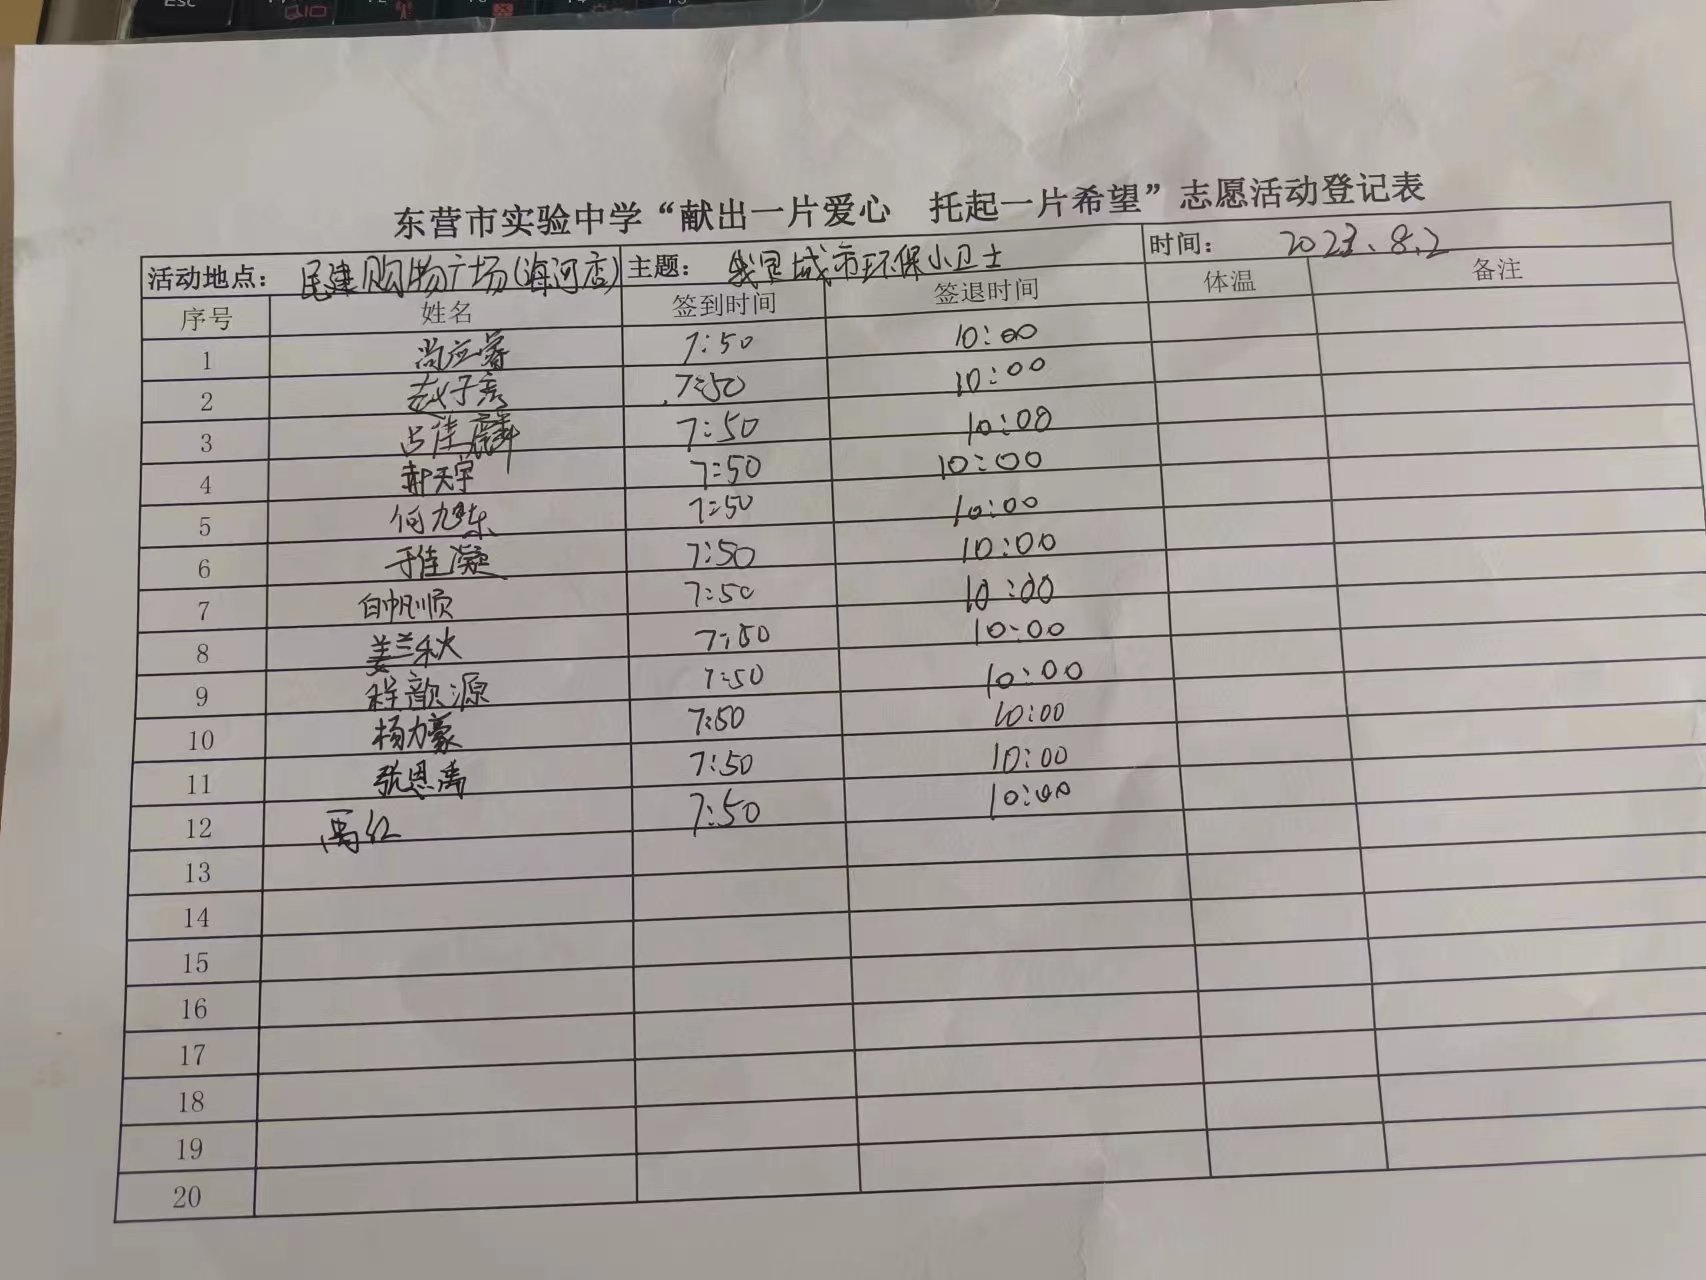 Esc
东营市实验中学“献出一片爱心 托起一片希望”志愿活动登记表
活动地点：民建购物广场(海河店) 主题：我是城市环保小卫士 时间：2023.8.2
序号 姓名 签到时间 签退时间 体温 备注
1 尚应睿 7:50 10:00
2 赵子彦 7:50 10:00
3 占佳麟 7:50 10:00
4 郝天宇 7:50 10:00
5 何旭东 7:50 10:00
6 于佳凝 7:50 10:00
7 白帆顺 7:50 10:00
8 姜兰秋 7:50 10:00
9 程歆源 7:50 10:00
10 杨力豪 7:50 10:00
11 张恩禹 7:50 10:00
12 禹红 7:50 10:00
13
14
15
16
17
18
19
20